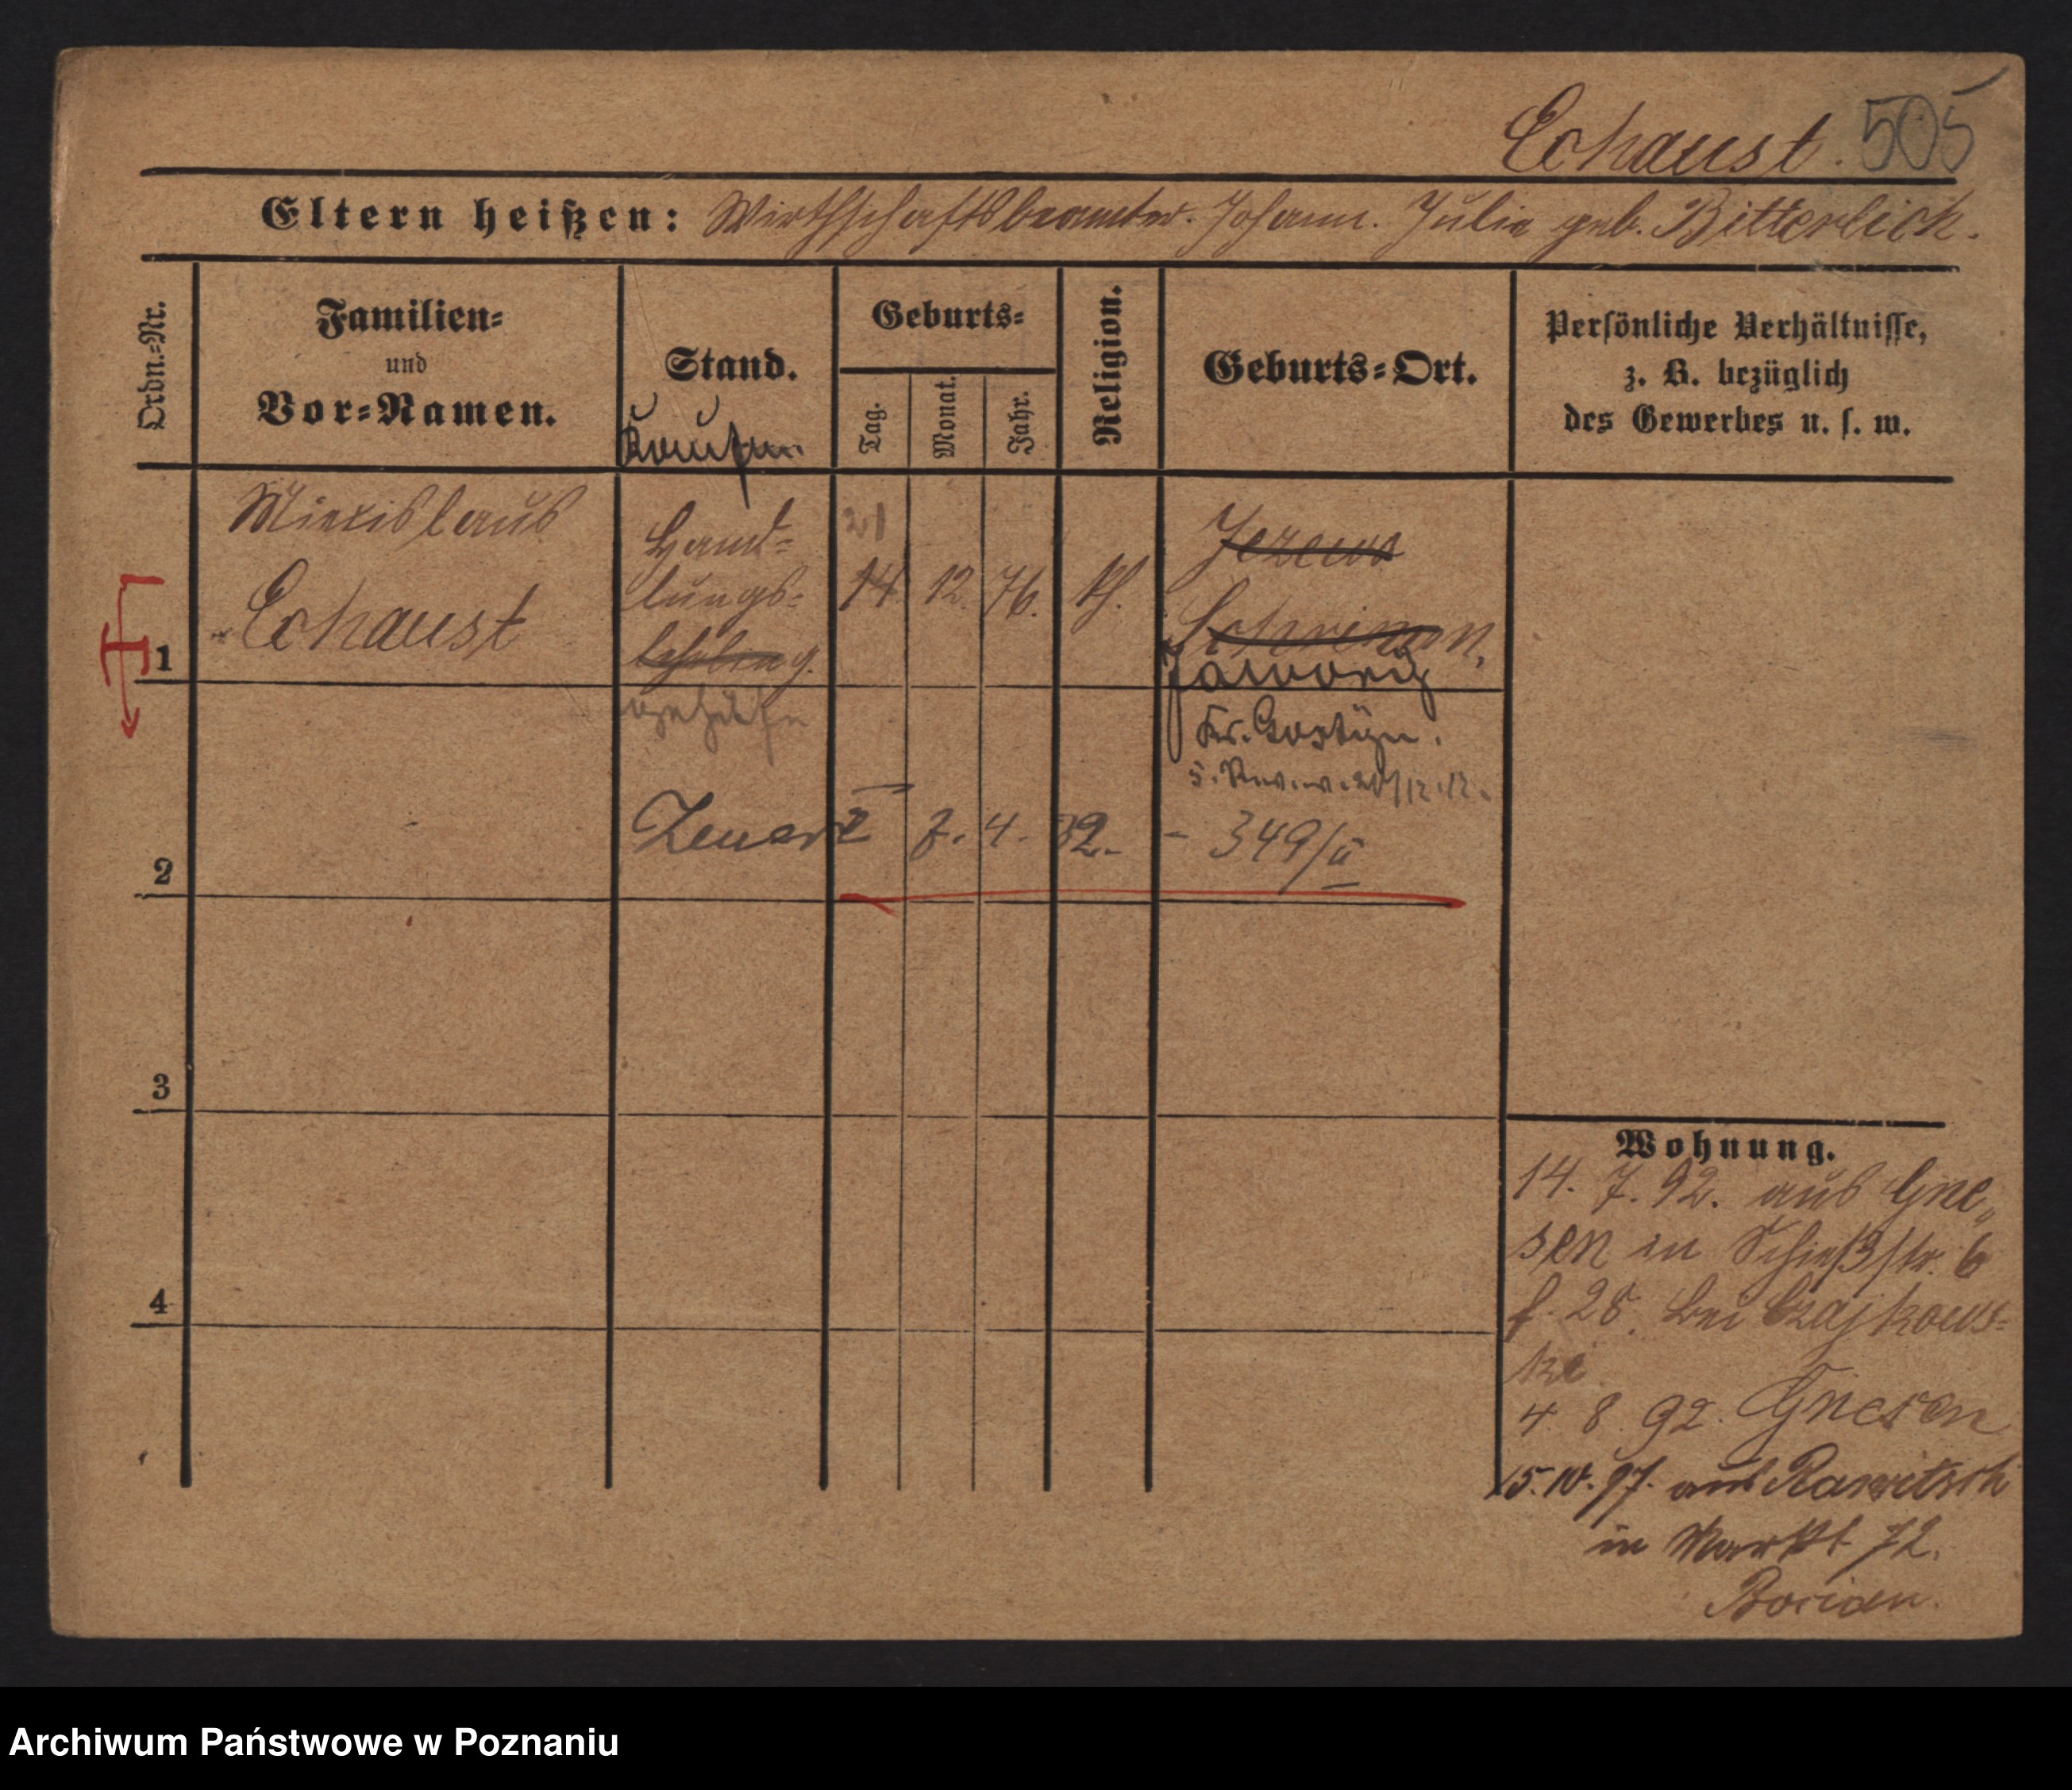 Echaust. 505
Eltern heißen: Wirthschaftsbeamter. Johann. Julie geb. Bitterlich.
Ordn.=Nr.
Familien=
und
Vor=Namen.
Stand.
Kaufm.
Geburts=
Tag.
Monat.
Jahr.
Religion.
Geburts=Ort.
Persönliche Verhältnisse,
z. B. bezüglich
des Gewerbes u. s. w.
1
Miecislaus
Echaust
Hand=
lungs=
lehrling.
gehülfe
21
14. 12. 76. kh.
Jezewo
Schrimm.
Jawory
Kr. Gostyn.
2
7. 4. 92. - 349/II
3
4
Wohnung.
14. 7. 92. aus Gne„
sen in Schießstr. 6
f. 28. bei Czajkows=
ki
4. 8. 92. Gnesen
15.10.97. aus Rawitsch
in Markt 72.
Archiwum Państwowe w Poznaniu